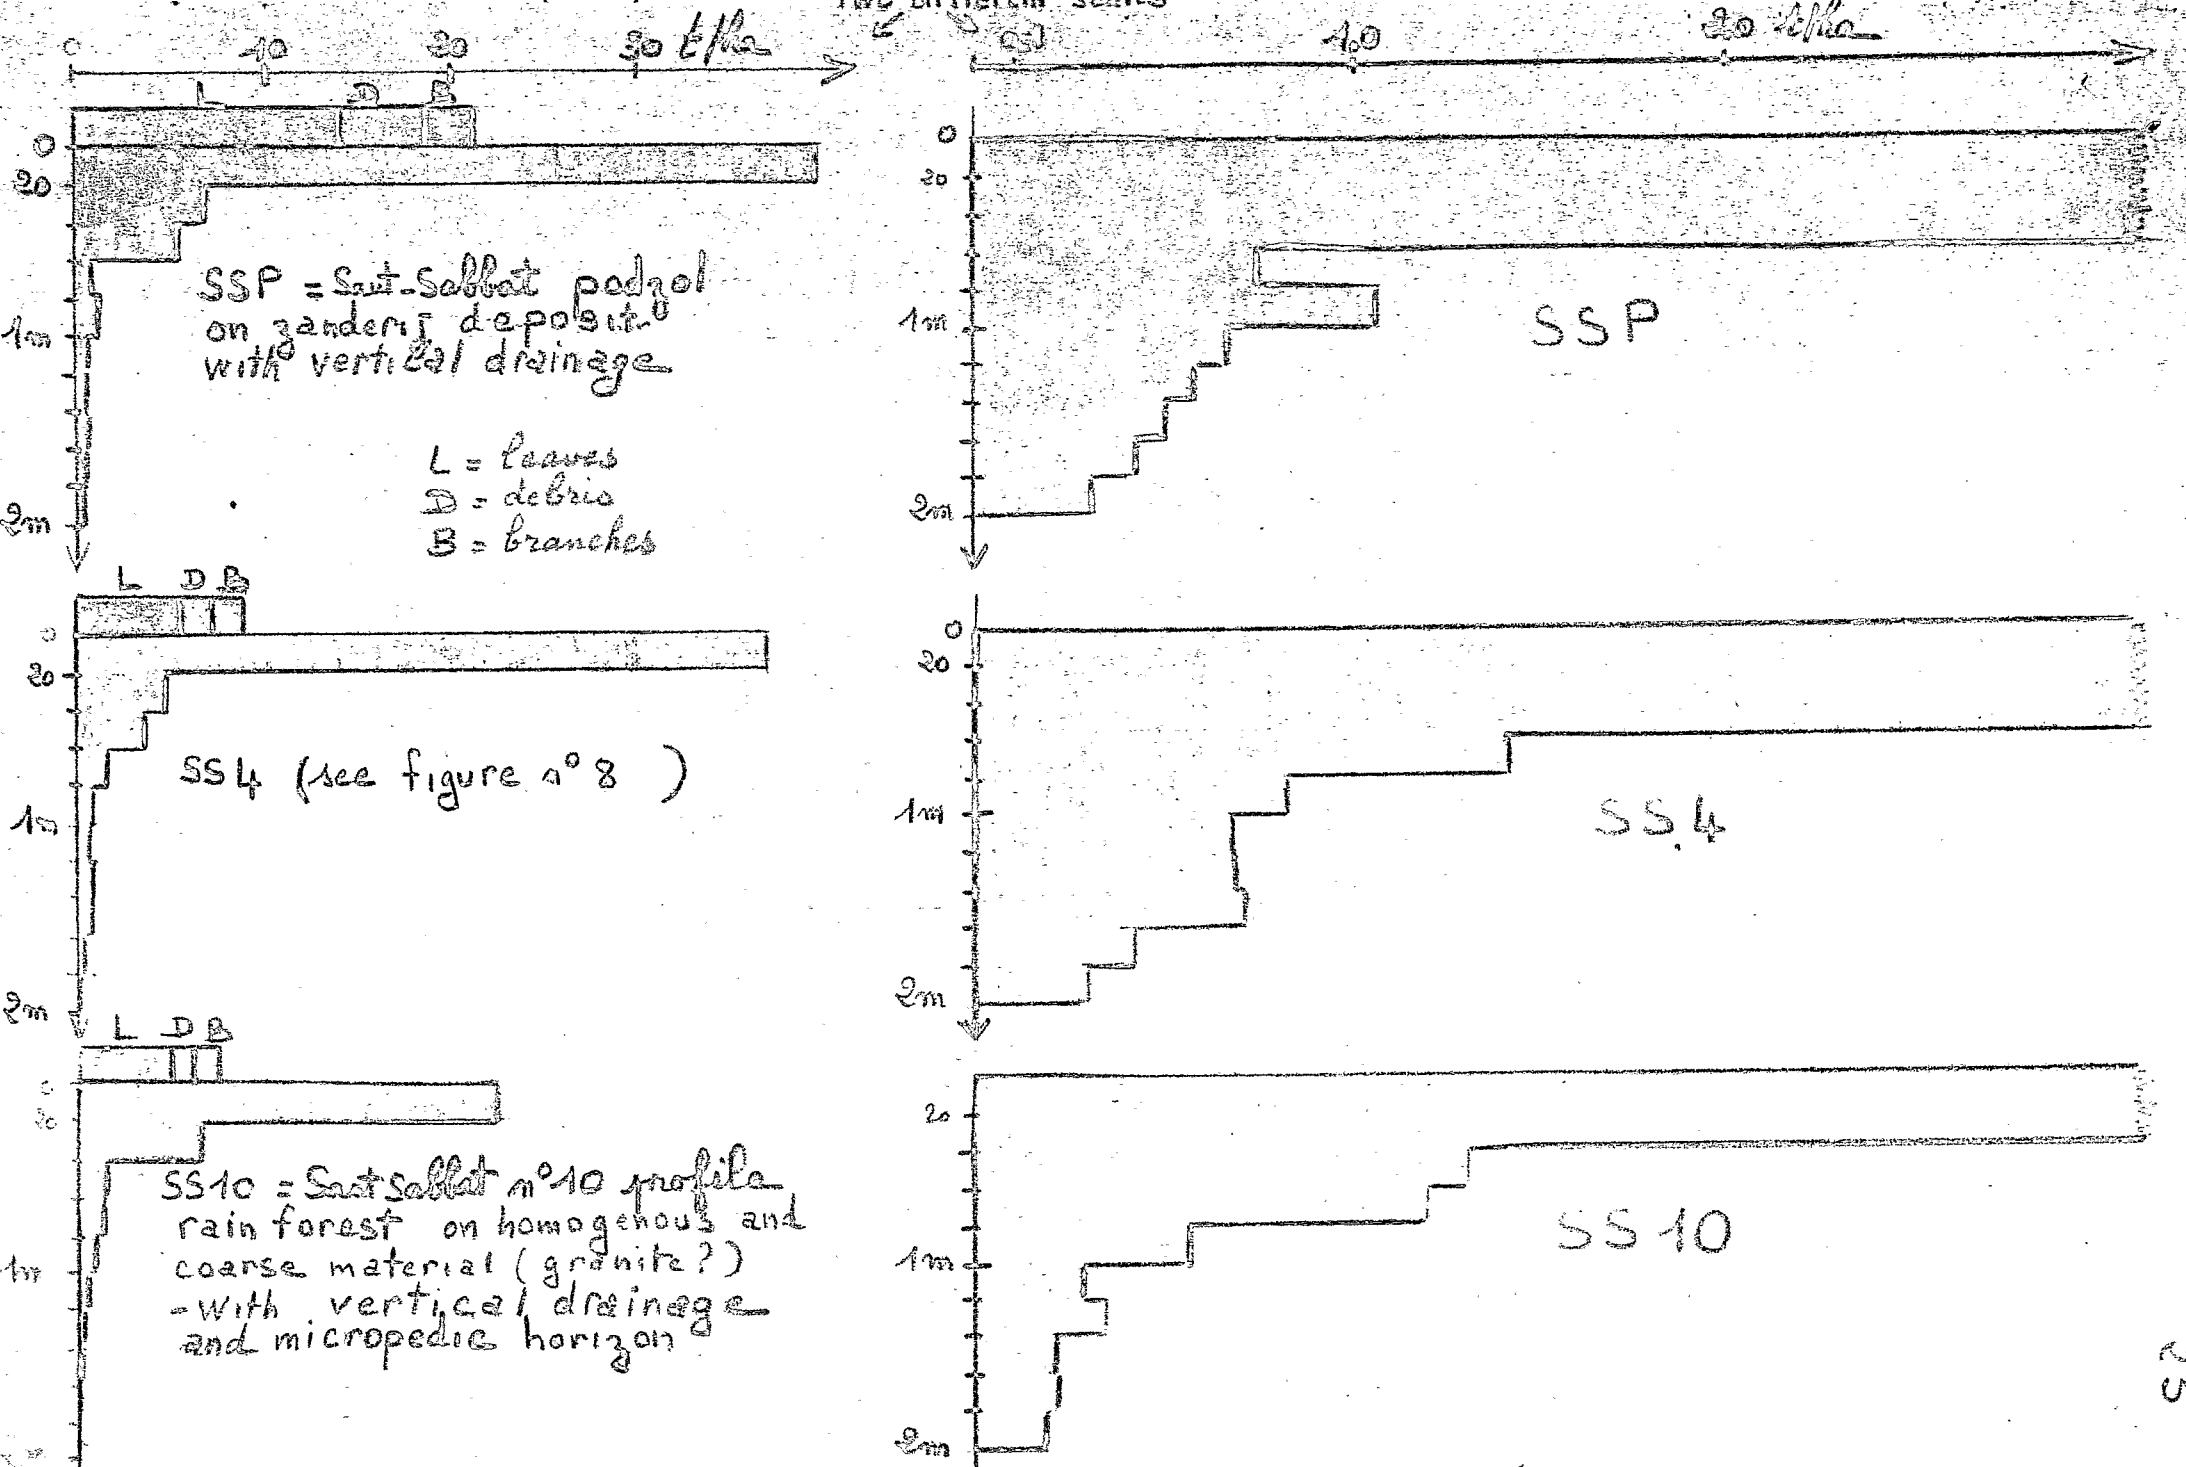 Two Different scales
0 10 20 30 t/ha
1,0 20 t/ha
L D B
0
20
1m
2m
SSP = Saut-Sabbat podzol
on zanderij deposit
with vertical drainage
L = leaves
D = debris
B = branches
0
20
1m
2m
SSP
L D B
0
20
1m
2m
SS4 (see figure n° 8 )
0
20
1m
2m
SS4
L D B
0
20
1m
SS10 = Saut Sabbat n°10 profile
rain forest on homogenous and
coarse material (granite?)
- with vertical drainage
and micropedic horizon
20
1m
2m
SS 10